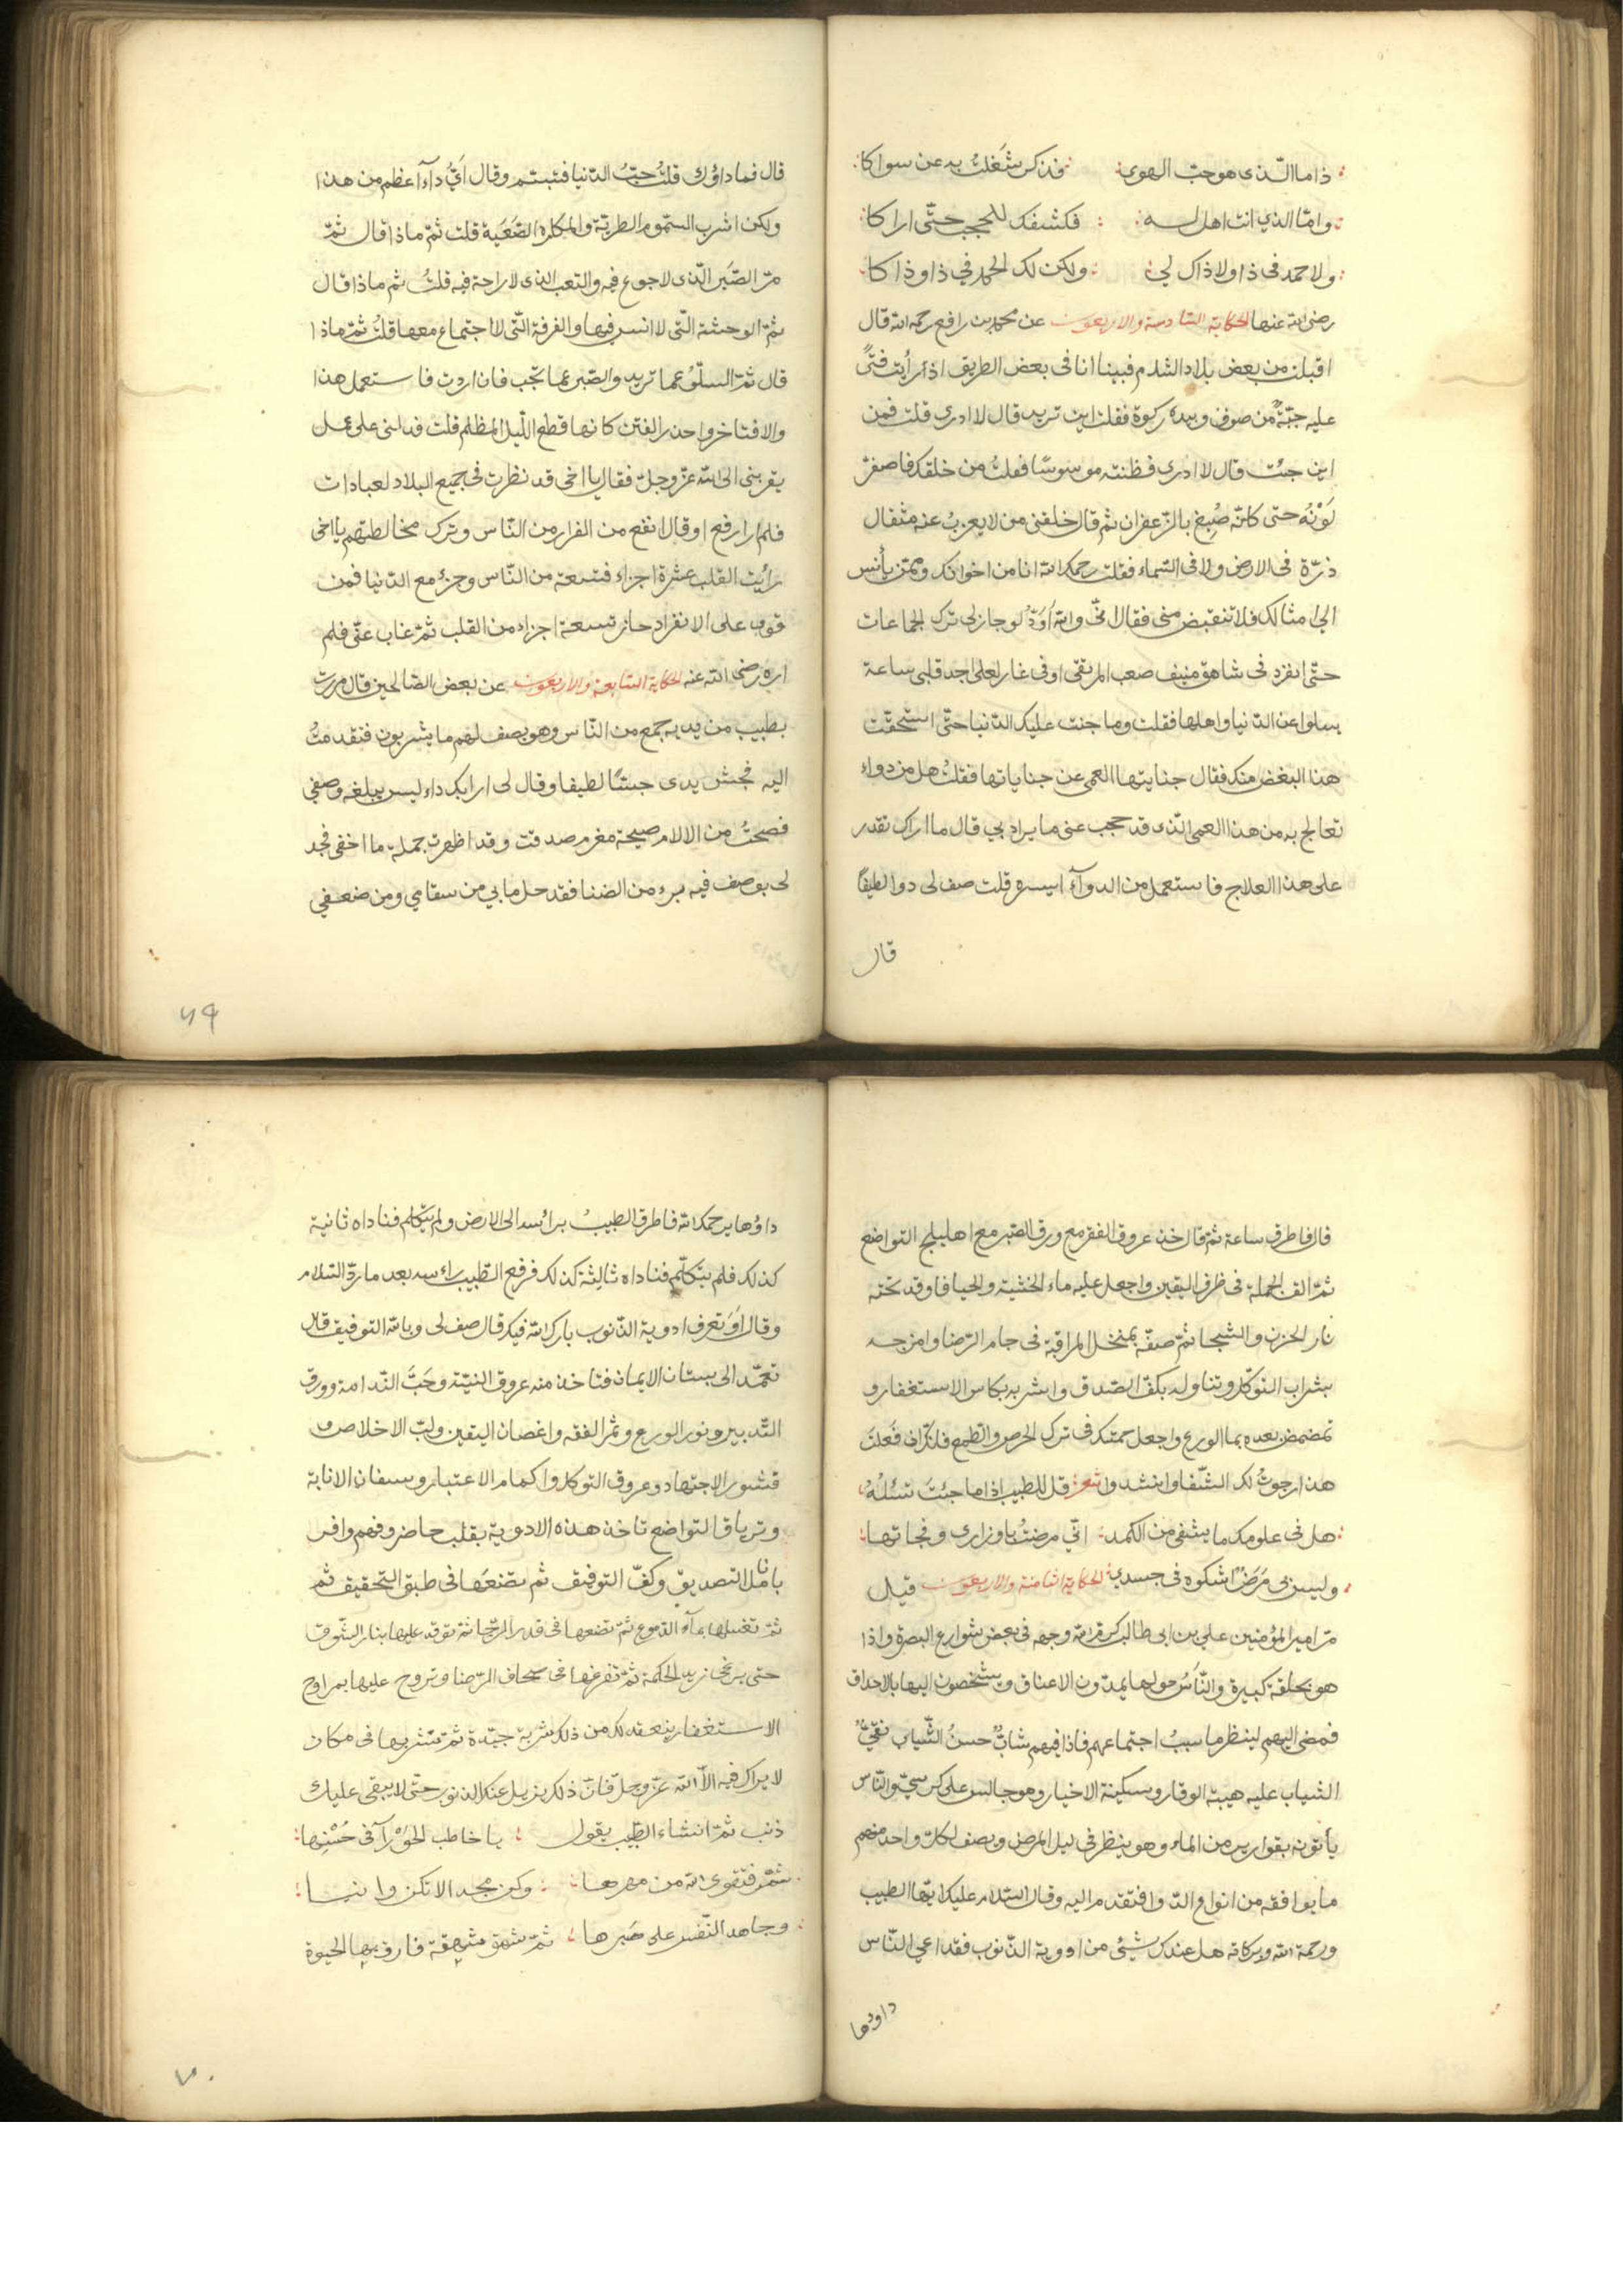 ذاما الذى هو حب الهوى فذكر شغلت به عن سواكا
واما الذي انت اهل له فكشفك للحجب حتى اراكا
ولا حمد فى ذا ولا ذاك لي ولكن لك الحمد في ذا وذاكا
رضى الله عنها الحكاية السادسة والاربعون عن محمد بن رافع رحمه الله قال
اقبلت من بعض بلاد الشام فبينا انا فى بعض الطريق اذ رأيت فتًى
عليه جبّةٌ من صوف وبيده ركوة فقلت اين تريد قال لا ادرى قلت فمن
اين جئت قال لا ادرى فظننته موسوسًا فقلتُ من خلقك فاصفرّ
لَوْنُه حتى كانّه صُبِغ بالزّعفران ثم قال خلقنى من لا يعزبُ عنه مثقال
ذرّة فى الارض ولا فى السّماء فقلت رحمك الله انا من اخوانك وممّن يأنس
الى امثالك فلا تنقبض منى فقال انّى والله اَوَدّ لو جاز لى ترك الجماعات
حتّى انفرد فى شاهق منيف صعب المرتقى او فى غار لعلى اجد قلبى ساعة
يسلوا عن الدّنيا واهلها فقلت وما جنت عليك الدّنيا حتّى استحقّت
هذا البغض منك فقال جنايتها العمى عن جناياتها فقلتُ هل من دواء
تعالج به من هذا العمى الّذى قد حجب عنى ما يراد بي قال ما اراك تقدر
على هذا العلاج فاستعمل من الدوآء ايسره قلت صف لى دوا لطيفًا
قال
قال فما داؤك قلتُ حبّ الدّنيا فتبسّم وقال اَىُّ دآءٍ اعظم من هذا
ولكن اشرب السّموم الطريّة والمكاره الصّعَبة قلت ثمّ ماذا قال ثمّ
مرّ الصّبَر الّذى لا جوع فيه والتعب الذى لا راحة فيه قلتُ ثم ماذا قال
ثمّ الوحشة الّتى لا انس فيها والفرقة الّتى لا اجتماع معها قلتُ ثمّ ماذا
قال ثمّ السلّوُ عما تريد والصّبر عما تحّب فان اردت فاستعمل هذا
والا فتاخر واحذر الفتن كانها قطع اللّيل المظلم قلت فدلنى على عمل
يقربنى الى الله عزّ وجلّ فقال يا اخى قد نظرت فى جميع البلاد لعبادات
فلم ار ارفع او قال انفع من الفرار من النّاس وترك مخالطتهم يا اخى
رأيت القلب عشرة اجزاء فتسعة من النّاس وجزء مع الدّنيا فمن
قوى على الانفراد حاز تسعة اجزاء من القلب ثمّ غاب عنّى فلم
اره رضى الله عنه الحكاية السابعة والاربعون عن بعض الصّالحين قال مررت
بطبيب من يديه جمع من النّاس وهو يصف لهم ما يشربون فتقدمتُ
اليه فجسّ يدى جسّا لطيفا وقال لى ارا بك داء ليس يبلغه وصفي
فصحتُ من الالام صيحة مغرم صدقت وقد اظهرت جملة ما اخفى فجد
لى بوصف فيه برء من الضنا فقد حل ما بي من سقامي ومن ضعفي
٦٩
قال فاطرق ساعة ثمّ قال خذ عروق الفقر مع ورق الصّبر مع اهليلج التواضع
ثمّ الق الجملة فى ظرف اليقين واجعل عليه ماء الخشية والحيا فاوقد تحته
نار الحزن والشّجا ثمّ صفّه بمنخل المراقبة فى جام الرّضا وامزجه
بشراب التوكّل وتناوله بكفّ الصّدق واشربه بكاس الاستغفار و
تمضمض بعده بما الورع واجعل حمّتك فى ترك الحرص والطّمع فلئن ان فَعَلْتَ
هذا رجوتُ لك الشّفا وانشدوا شعر قل للطبيب اذا ما جئتَ تسئلُهُ
هل فى علومك ما يشفى من الكمد انّي مرضتُ باوزارى ونجاتها
وليس بى مَرَضٌ اشكوه فى جسدي الحكاية الثامنة والاربعون قيل
مرّ امير المؤمنين علي بن ابى طالب كرّم الله وجهه فى بعض شوارع البصرة واذا
هو بحلقة كبيرة والنّاسُ حولها يمدّون الاعناق ويشخصون اليها بالاحداق
فمضى اليهم لينظر ما سببُ اجتماعهم فاذا فيهم شابٌّ حسنُ الشّباب نقيّ
الشياب عليه هيبة الوقار وسكينة الاخيار وهو جالس على كرسىّ والنّاس
يأتونه بقوارير من الماء وهو ينظر فى ليل المرض ويصف لكلّ واحد منهم
ما يوافقه من انواع الدّوا فتقدم اليه وقال السّلام عليك ايّها الطبيب
ورحمة الله وبركاته هل عندك شيئ من ادوية الذّنوب فقد اعي النّاس
داوؤها
داؤها يرحمك الله فاطرق الطبيبُ برأسه الى الارض ولم يتكلم فناداه ثانية
كذلك فلم يتكلّم فناداه ثالثة كذلك فرفع الطّبيب راسه بعد ما ردّ السّلام
وقال اَوَتعرف ادوية الذّنوب بارك الله فيك قال صف لى وبالله التوفيق قال
تعمّد الى بستان الايمان فتاخذ منه عروق النيّة وحَبَّ النّدامة وورق
التّدبير وبزر الورع وثمر الفقه واغصان اليقين ولبّ الاخلاص و
قشور الاجتهاد وعروق التوكل واكمام الاعتبار وسفان الانابة
وترياق التواضع تاخذ هذه الادوية بقلب حاضر وفهم وافر
بانامل التصديق وكفّ التوفيق ثم تضعَها فى طبق التّحقيق ثم
ثمّ تغسلها بمآء الدّموع ثمّ تضعها فى قدر الرّجا ثمّ توقد عليها بنار الشّوق
حتى يرغى زبد الحكمة ثمّ تفرغها فى صحاف الرّضا وتروح عليها بمراوح
الاستغفار ينعقد لك من ذلك شربة جيّدة ثمّ تشربها فى مكان
لا يراك فيه الّا الله عزّ وجلّ فانّ ذلك يزيل عنك الذنوب حتّى لا يبقى عليك
ذنب ثمّ انشاء الطّبيب يقول يا خاطب الحَوْرآء فى حُسْنِها
شمّر فتقوى الله من مهرها وكن مجدا لا تكن وانيا
وجاهد النّفس على صَبرها ثمّ شهق شهقة فارق بها الحيوة
٧٠